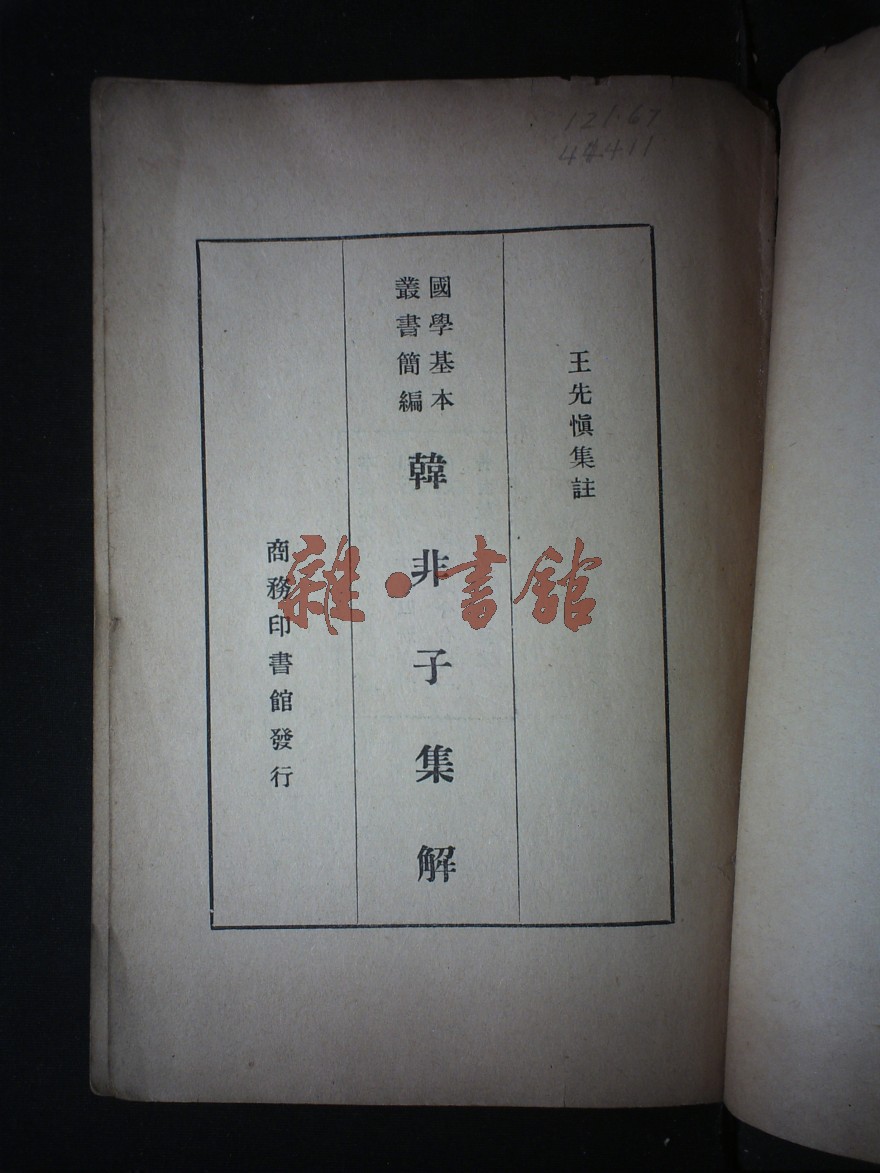 121.67
44411
王先愼集註
國學基本
叢書簡編
韓非子集解
商務印書館發行
雜·書館